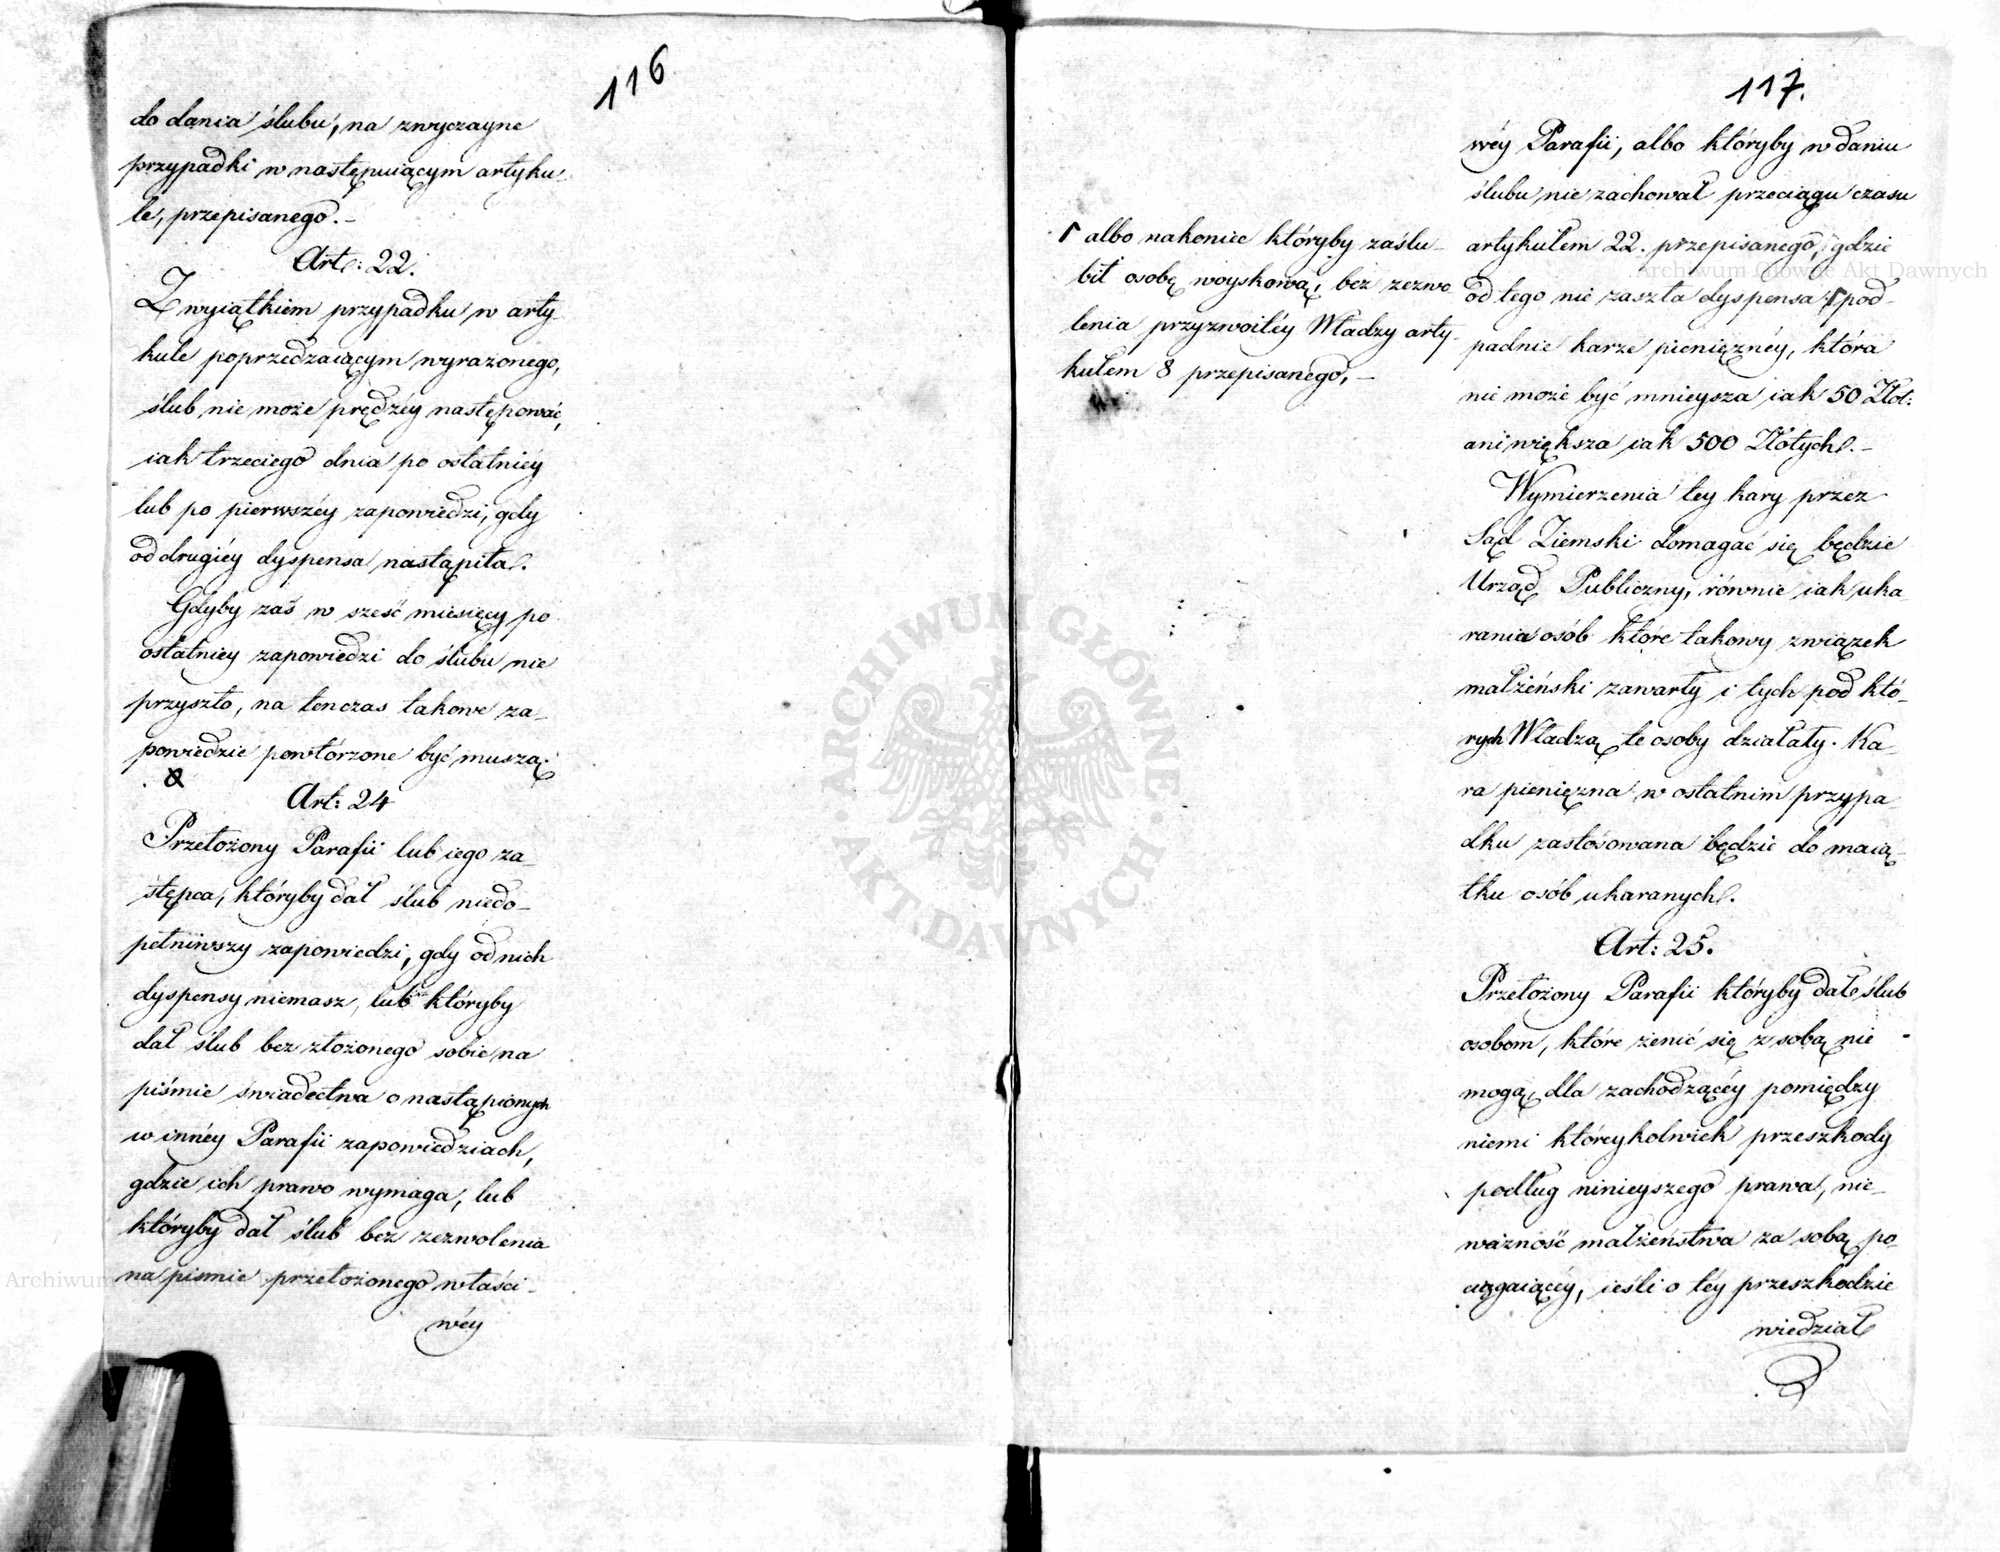 116
do dania ślubu, na zwyczayne
przypadki w następuiącym artyku-
le, przepisanego. –
Art: 22.
Z wyiątkiem przypadku w arty-
kule poprzedzaiącym wyrażonego,
ślub nie może prędzéy następować,
iak trzeciego dnia po ostatniéy
lub po pierwszéy zapowiedzi, gdy
od drugiéy dyspensa nastąpiła.
Gdyby zaś w sześć miesięcy po
ostatniey zapowiedzi do ślubu nie
przyszło, na tenczas takowe za-
powiedzie powtórzone być muszą.
Art: 24
Przełożony Parafii lub iego za-
stępca, któryby dał ślub niedo-
pełniwszy zapowiedzi, gdy od nich
dyspensy niemasz, lub któryby
dał ślub bez złożonego sobie na
piśmie świadectwa o nastąpionych
w innéy Parafii zapowiedziach,
gdzie ich prawo wymaga, lub
któryby dał ślub bez zezwolenia
na piśmie przełożonego właści-
wéy
117.
wéy Parafii, albo któryby w daniu
ślubu nie zachował przeciągu czasu
artykułem 22. przepisanego, gdzie
od tego nie zaszła dyspensa pod-
padnie karze pieniężnéy, która
nie może być mnieysza iak 50 Złot:
ani większa iak 500 Złotych. –
Wymierzenia tey kary przez
Sąd Ziemski domagać się będzie
Urząd Publiczny, równie iak uka-
rania osób które takowy związek
małżeński zawarły i tych pod któ-
rych Władzą te osoby działały. Ka-
ra pieniężna w ostatnim przypa-
dku zastósowana będzie do maią-
tku osób ukaranych.
Art: 25.
Przełożony Parafii któryby dał ślub
osobom, które żenić się z sobą nie
mogą, dla zachodzącéy pomiędzy
niemi któreykolwiek przeszkody
podług ninieyszego prawa, nie-
ważność małżeństwa za sobą po-
ciągaiącéy, ieśli o téy przeszkodzie
wiedział
albo nakoniec któryby zaślu-
bił osobę woyskową, bez zezwo-
lenia przyzwoitéy Władzy arty-
kułem 8 przepisanego, –
ARCHIWUM GŁÓWNE
AKT DAWNYCH
Archiwum Główne Akt Dawnych
Archiwum